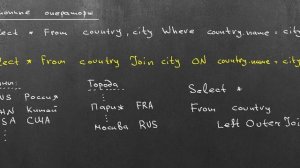 ионные операторы
lect * From country, city Where country.name = city
ect * From country Join city ON country.name = city
Города
US Россия
HN Китай
SA США
⋮
⋮
Париж FRA
⋮
Москва RUS
Select *
From country
Left Outer Joi